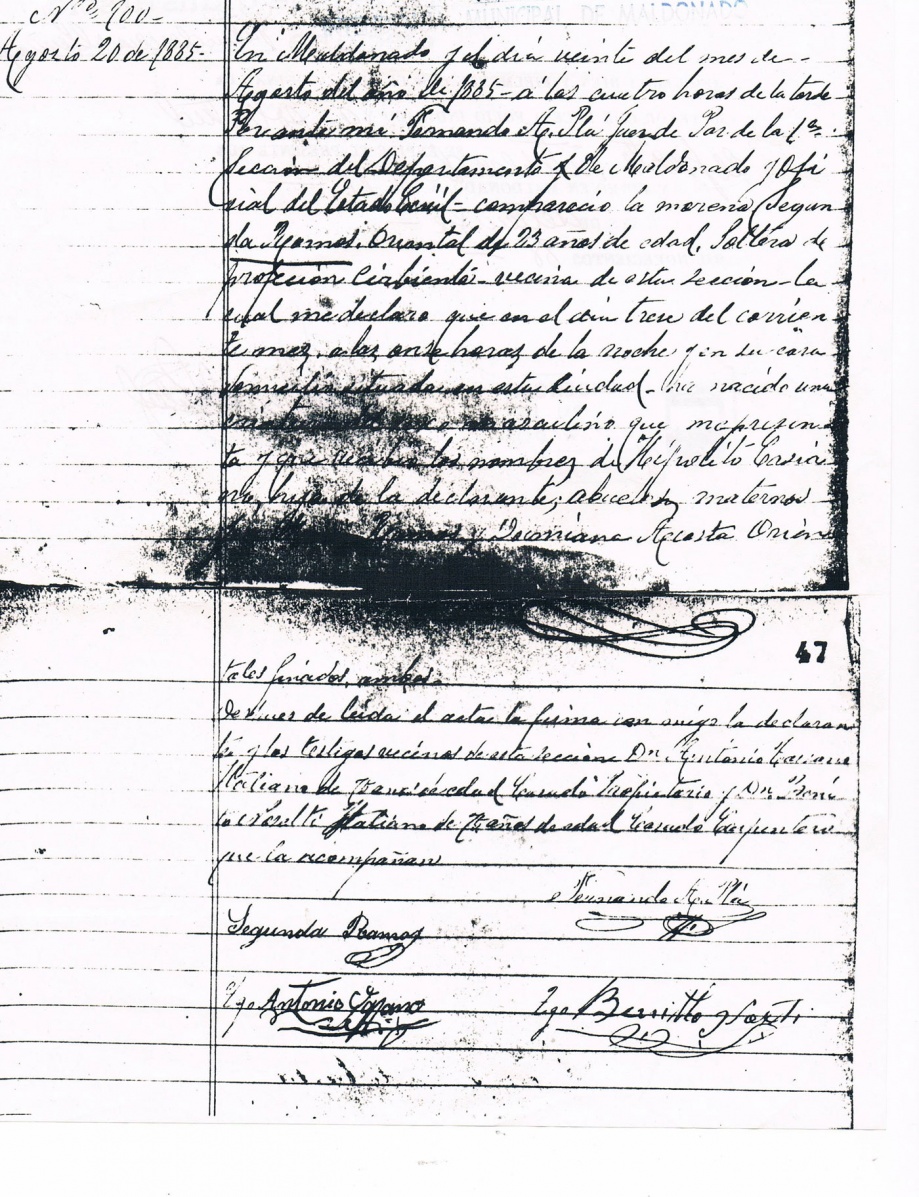 MUNICIPAL DE MALDONADO
Nº 100-
Agosto 20 de 1885-
En Maldonado y el dia veinte del mes de -
Agosto del año de 1885 - a las cuatro horas de la tarde
Por ante mi Fernando A. Plá Juez de Paz de la 1ª
Sección del Departamento de Maldonado y Ofi
cial del Estado Civil - compareció la morena Segun
da Ramos, Oriental de 23 años de edad, Soltera de
profecion Cirbienta - vecina de esta sección - la
cual me declaro que en el dia trese del corrien
te mez, a las onse horas de la noche y en su casa
domicilio situada en esta Ciudad - ha nacido una
masculino que me presen
ta y que los nombrez de Hipolito Casia
no, hijo de la declarante, abuelos maternos
Ramos y Damiana Acosta Orien
47
tales finados, ambos.
Despues de leida el acta la firma con migo la declaran
te y los testigos vecinos de esta sección Dn Antonio
Italiano de edad Propietario y Dn
Italiano de años de edad Carpintero
que la acompañan
Fernando A. Plá
Segunda Ramos
Tgo Antonio
Tgo